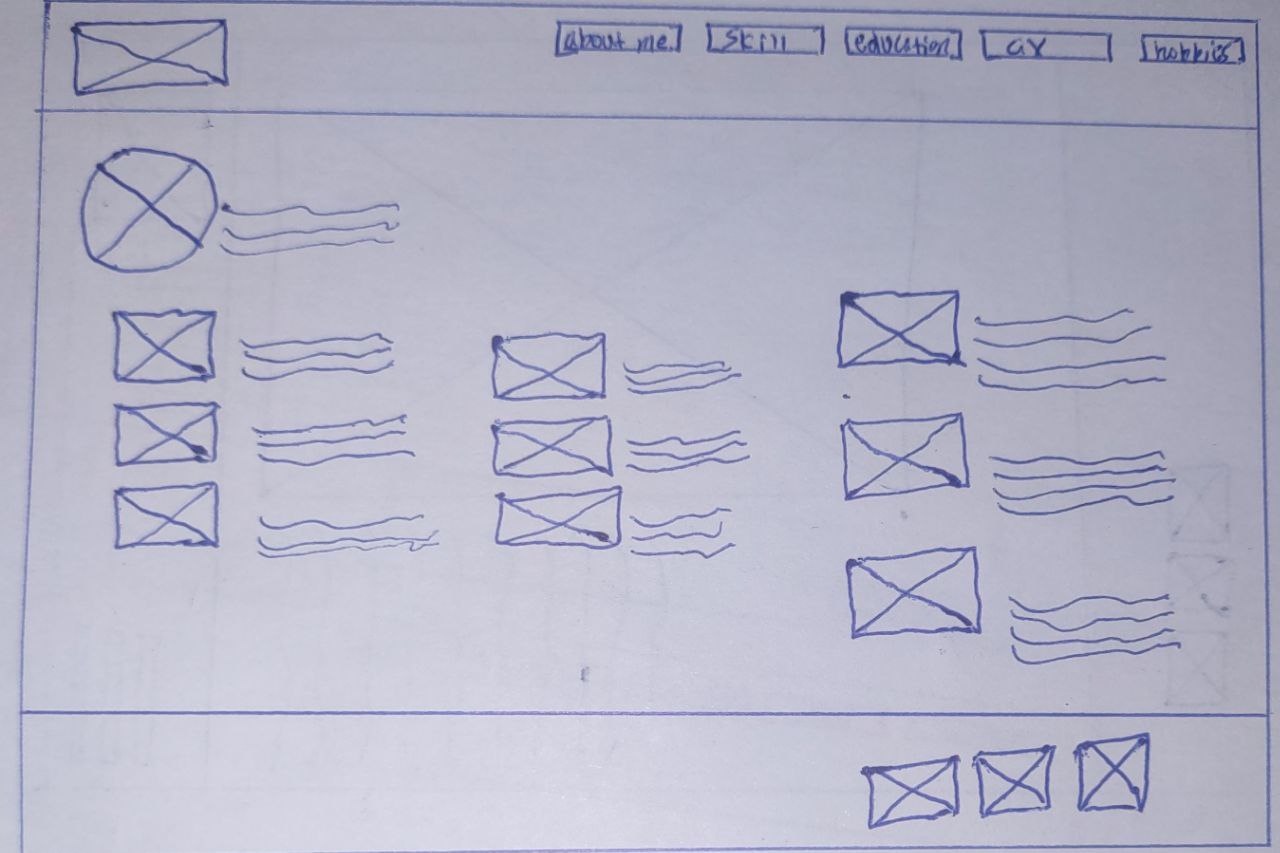 about me
skill
education
cv
hobbies